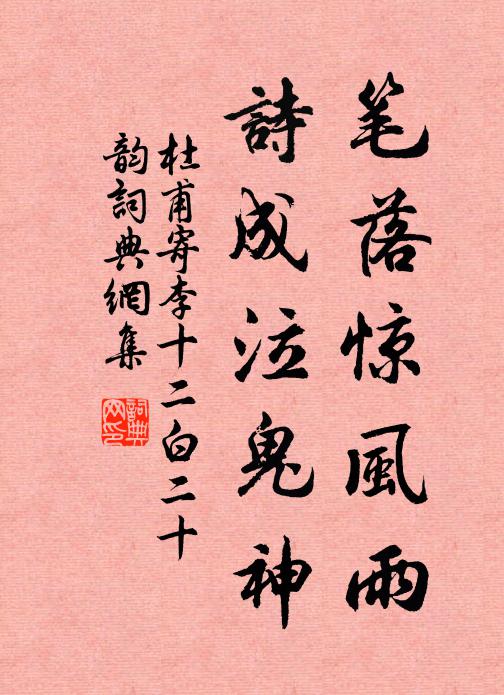 笔落惊風雨
詩成泣鬼神
杜甫寄李十二白二十
韵詞典網集
詞典
网印